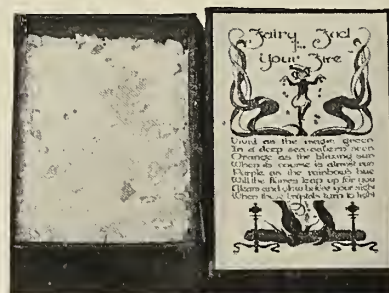 Fairy Fuel
For
Your Fire
Vivid as the magic green
In a deep sea-cavern seen
Orange as the blazing sun
When its course is almost run
Purple as the rainbow's hue
Will the flames leap up for you
Gleam and glow before your sight
When these crystals turn to light